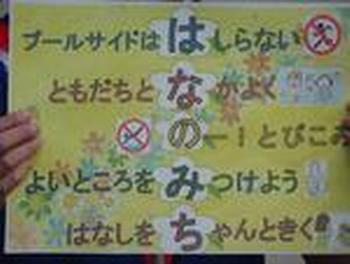 プールサイドは はしらない
ともだちと なかよく
の－！とびこみ
よいところを みつけよう
はなしを ちゃんときく